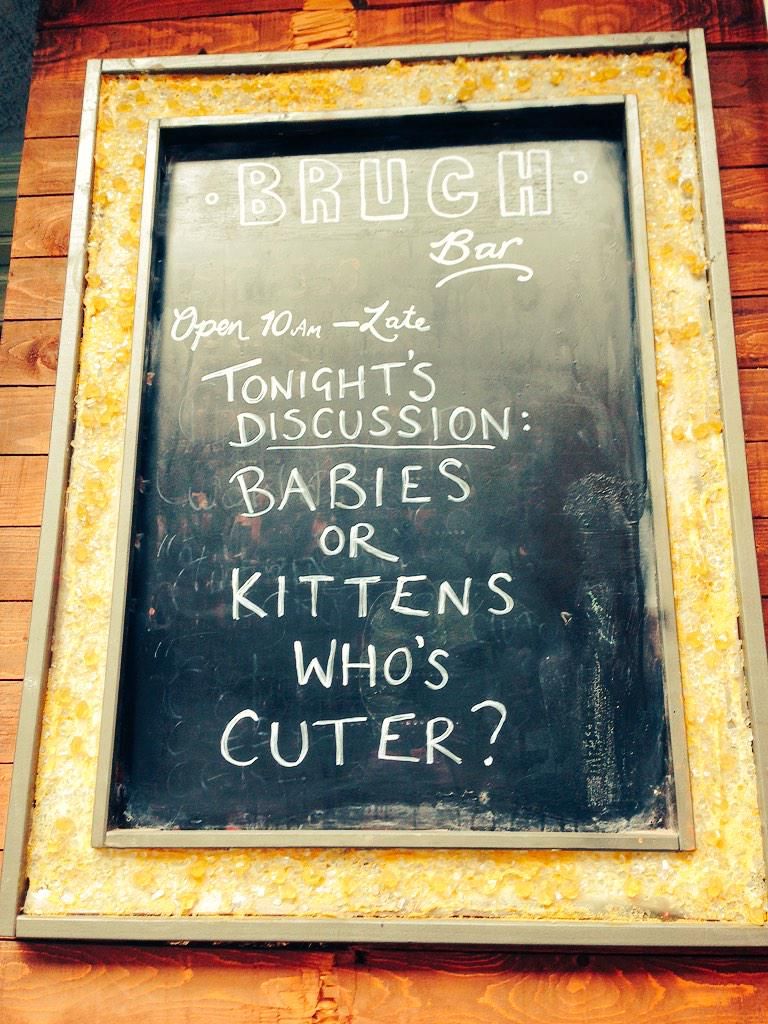 · BRUCH ·
Bar
Open 10AM – Late
TONIGHT'S
DISCUSSION:
BABIES
OR
KITTENS
WHO'S
CUTER?